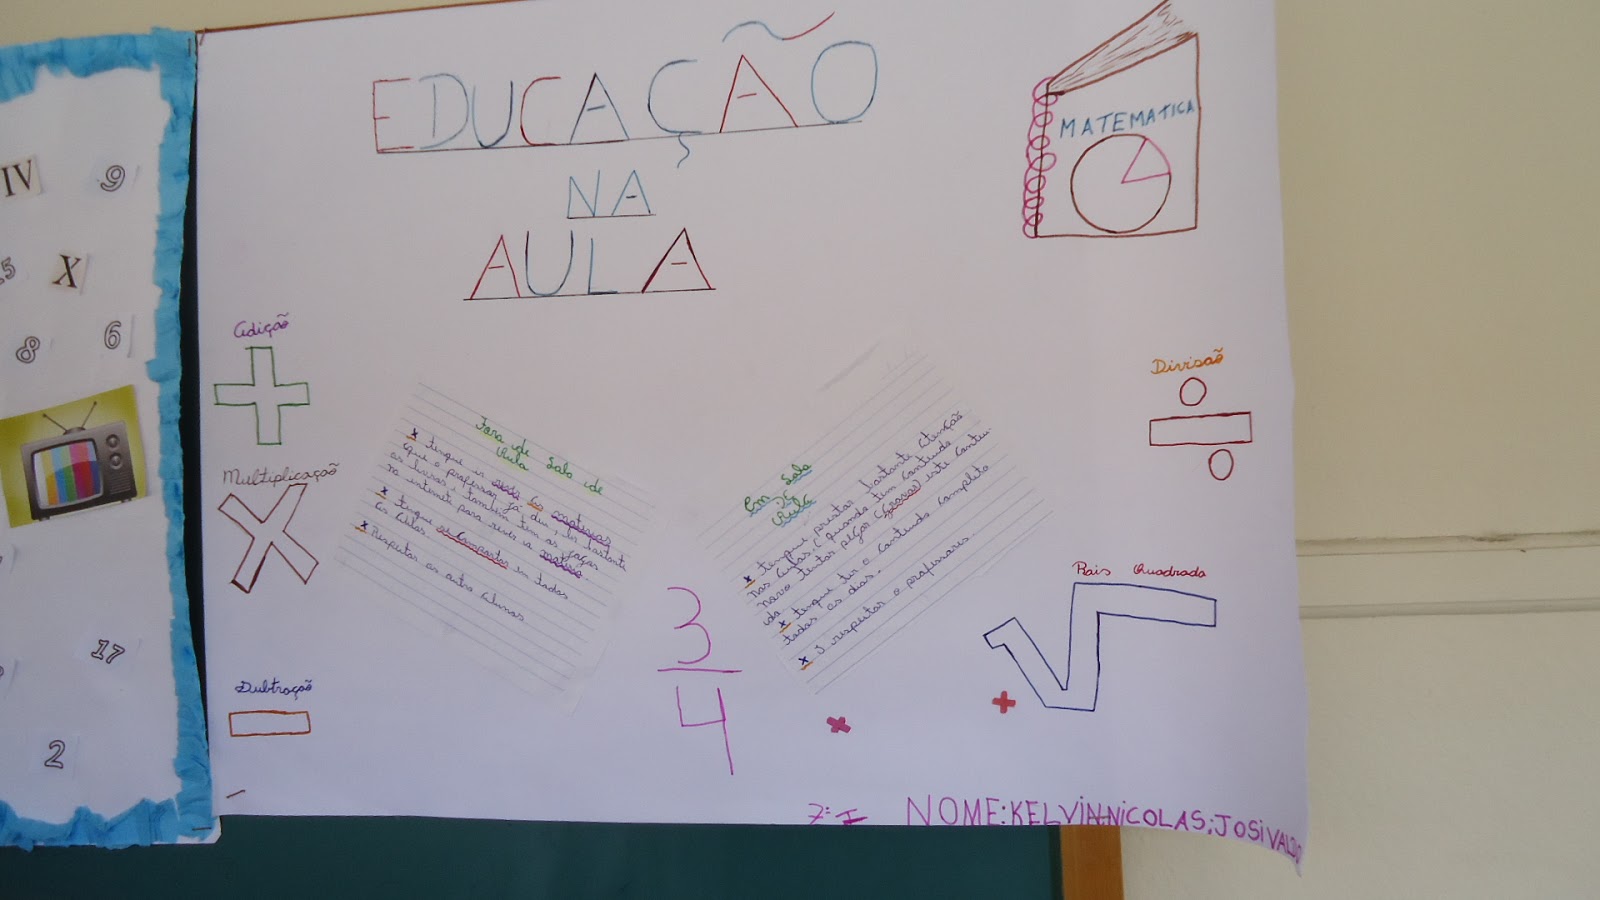 EDUCAÇÃO
NA
AULA
MATEMATICA
IV
9
X
8
6
17
2
Adição
Multiplicação
Subtração
Divisão
Rais Quadrada
Fora de Sala de
Aula
x tenque ir as matérias
que o professor já deu, ler bastante
os livros, também tem as
na internete para rever a matéria.
x tenque se Comportar em todas
as aulas.
x Respeitar os outro alunos
Em Sala
de
Aula
x tenque prestar bastante atenção
nas aulas, e quando tem Conteudo
novo tentar peçar (Gravar) este Conteu-
do
x tenque ter o Conteudo Completo
todos os dias.
x I respeitar o professores.
3
4
7:I NOME:KELVIN-NICOLAS;JOSIVALDO